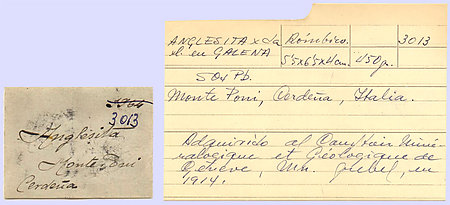 3013
Anglesita
Monte Poni
Cerdeña
ANGLESITA x la
xl en GALENA
SO4 Pb.
Rómbico.
5'5x6'5x4cm.
450g.
3013
Monte Poni, Cerdeña, Italia.
Adquirido al Comptoir Miné-
ralogique et Géologique de
Géneve, Mr. Grebel, en
1914.